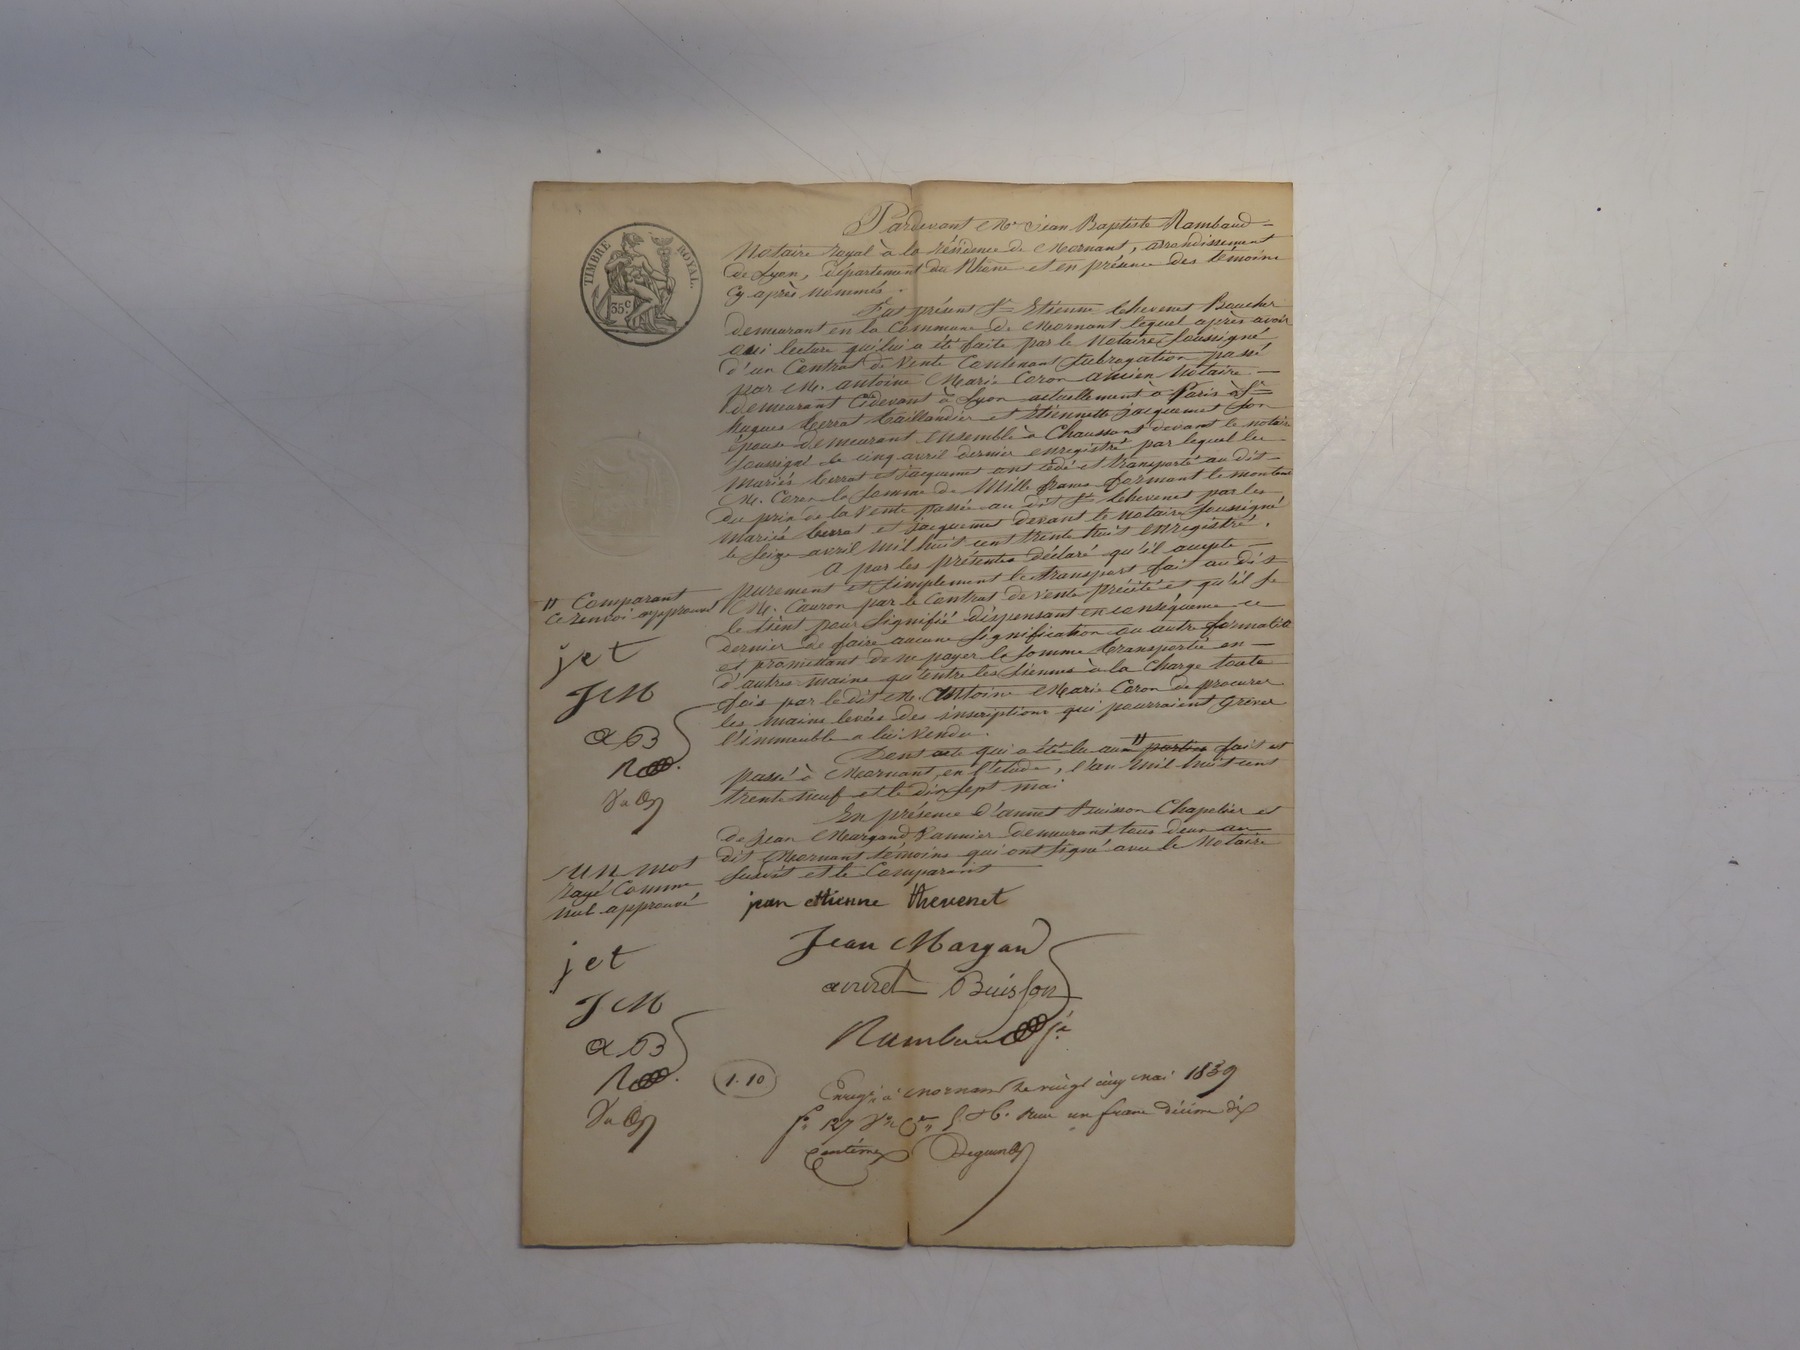 TIMBRE ROYAL.
35c
Pardevant Me Jean Baptiste Rambaud
Notaire royal à la résidence de Mornant, arrondissement
de Lyon, département du Rhône et en présence des témoins
cy après nommés.
Fut présent Sr Etienne thevenet Boucher
demeurant en la Commune de Mornant lequel après avoir
oui lecture qui lui a été faite par le Notaire Soussigné
d'un Contrat de Vente Contenant Subrogation passé
par M. antoine Marie Coron ancien Notaire
demeurant Cidevant à Lyon actuellement à Paris à Sr
hugues terrat taillandier et Etiennette jacquemet son
épouse demeurant ensemble à Chaussant devant le notaire
soussigné le cinq avril dernier enregistré par lequel les
mariés terrat et jacquemet ont cédé et transporté au dit
M. Coron la somme de Mille francs formant le montant
du prix de la vente passée au dit Sr thevenet par les
mariés terrat et jacquemet devant le notaire soussigné
le seize avril mil huit cent trente huit enregistré.
A par les présentes déclaré qu'il accepte
purement et simplement le transport fait au dit
M. Couron par le Contrat de vente précité et qu'il se
le tient pour signifié dispensant en conséquence ce
dernier de faire aucune signification ou autre formalité
et promettant de ne payer la somme transportée en
d'autres mains qu'entre les siennes à la charge toute
fois par le dit M. Antoine Marie Coron de procurer
les mains levées des inscriptions qui pourraient grever
l'immeuble a lui vendu.
Dont acte qui a été lu aux " parties fait et
passé à Mornant en l'étude, l'an mil huit cent
trente neuf et le dix sept mai
En présence d'annet Buisson Chapelier et
de Jean Margand Vannier demeurant tous deux au
dit Mornant témoins qui ont signé avec le Notaire
et le Comparant
" Comparant
ce renvoi approuvé
jet
JM
aB
R
un mot
rayé Comme
nul approuvé
jet
JM
aB
R
jean etienne thevenet
Jean Margand
annet Buisson
Rambaud
1.10
Enregé à Mornant le vingt cinq mai 1839
fo 127 reçu un franc décime dix
centimes